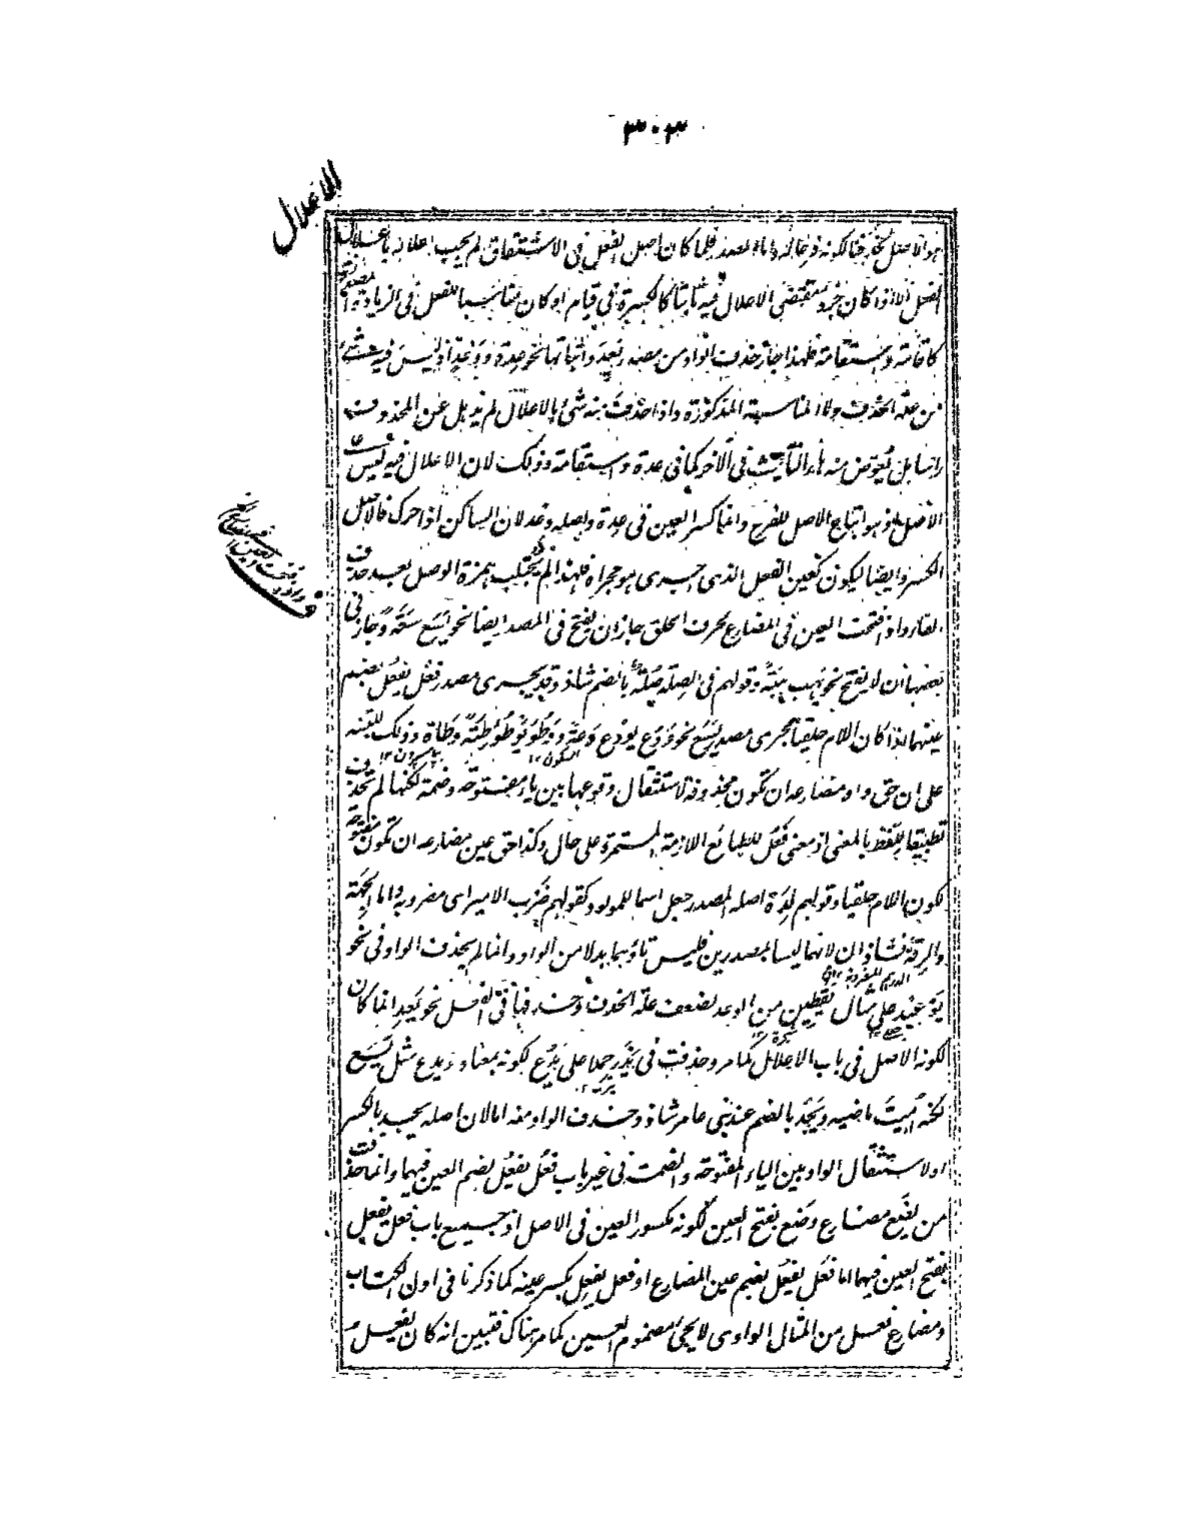 ٣٠٣
الاعلال
هو الاصل لكونه فرعا له واما المصدر فلما كان اصل الفعل فى الاشتقاق لم يجب اعلاله باعلال
الفعل الا اذا كان جزء مقتضى الاعلال فيه ثابتا كالكسرة فى قيام او كان مناسبا للفعل فى الزيادة المصدرية
كاقامة واستقامة فلهذا جاز حذف الواو من مصدر يَعِدُ واثباتها نحو عِدة ووَعْدا وليس فيه شىء
من علة الحذف ولا المناسبة المذكورة واذا حذفت منه شئ بالاعلال لم تذهل عن المحذوف
راسا بل تُعوّض منه هاء التأنيث فى الآخر كما فى عدة واستقامة وذلك لان الاعلال فيه ليس
الاصل اذ هو اتباع الاصل للفرع وانما كسر العين فى عدة واصله وعد لان الساكن اذا حرك فالاصل
الكسر وايضا ليكون كعين الفعل الذى اجرى هو مجراه فلهذا لم يجتلب همزة الوصل بعد حذف
الفاء واذا فتحت العين فى المضارع لحرف الحلق جاز ان يفتح فى المصدر ايضا نحو يَسَع سَعَة وجاز فى
بعضها ان لا يفتح نحو يهب هِبَة وقولهم فى الصِلة صُلة بالضم شاذ وقد يجرى مصدر فعُل يفعُل بضم
عينهما اذا كان اللام حلقيا مجرى مصدر يَسَع نحو وَدُع يودُع دَعَة ووَطُؤ يَوْطُؤ طِئَة وطَاة وذلك للتنبه
على ان حق واو مضارعه ان تكون محذوفة لاستثقال وقوعها بين ياء مفتوحة وضمة لكنها لم تحذف
تطبيقا للفظ بالمعنى اذ معنى فَعُل للطبائع اللازمة المستمرة على حال وكذا حق عين مضارعه ان تكون مفتوحة
لكون اللام حلقيا وقولهم لِدَة اصله المصدر جعل اسما للمولود كقولهم ضَرْب الامير اى مضروبه واما الجِهَة
والرِقة فشاذان لانهما ليسا بمصدرين فليس تاؤهما بدلا من الواو وانما لم يحذف الواو فى نحو
يَوْعِيْد على مثال يقطين من الوعد لضعف علة الحذف وحذفها فى الفعل نحو يَعِد انما كان
لكونه الاصل فى باب الاعلال كما مر وحذفت فى يَذَر حملا على يَدَع لكونه بمعناه ويدع مثل يَسَع
لكنه اُمِيتَ ماضيه ويَجُد بالضم عند بنى عامر شاذ وحذف الواو منه اما لان اصله يجد بالكسر
او لاستثقال الواو بين الياء المفتوحة والضمة فى غير باب فعُل يفعُل بضم العين فيهما وانما حذفت
من يضَع مضارع وضَع بفتح العين لكونه مكسور العين فى الاصل اذ جميع باب فعَل يفعَل
بفتح العين فيهما اما فعَل يفعُل بضم عين المضارع او فعل يفعِل بكسر عينه كما ذكرنا فى اول الكتاب
ومضارع فعل من المثال الواوى لا يجئ مضموم العين كما مر هناك فتبين انه كان يفعل